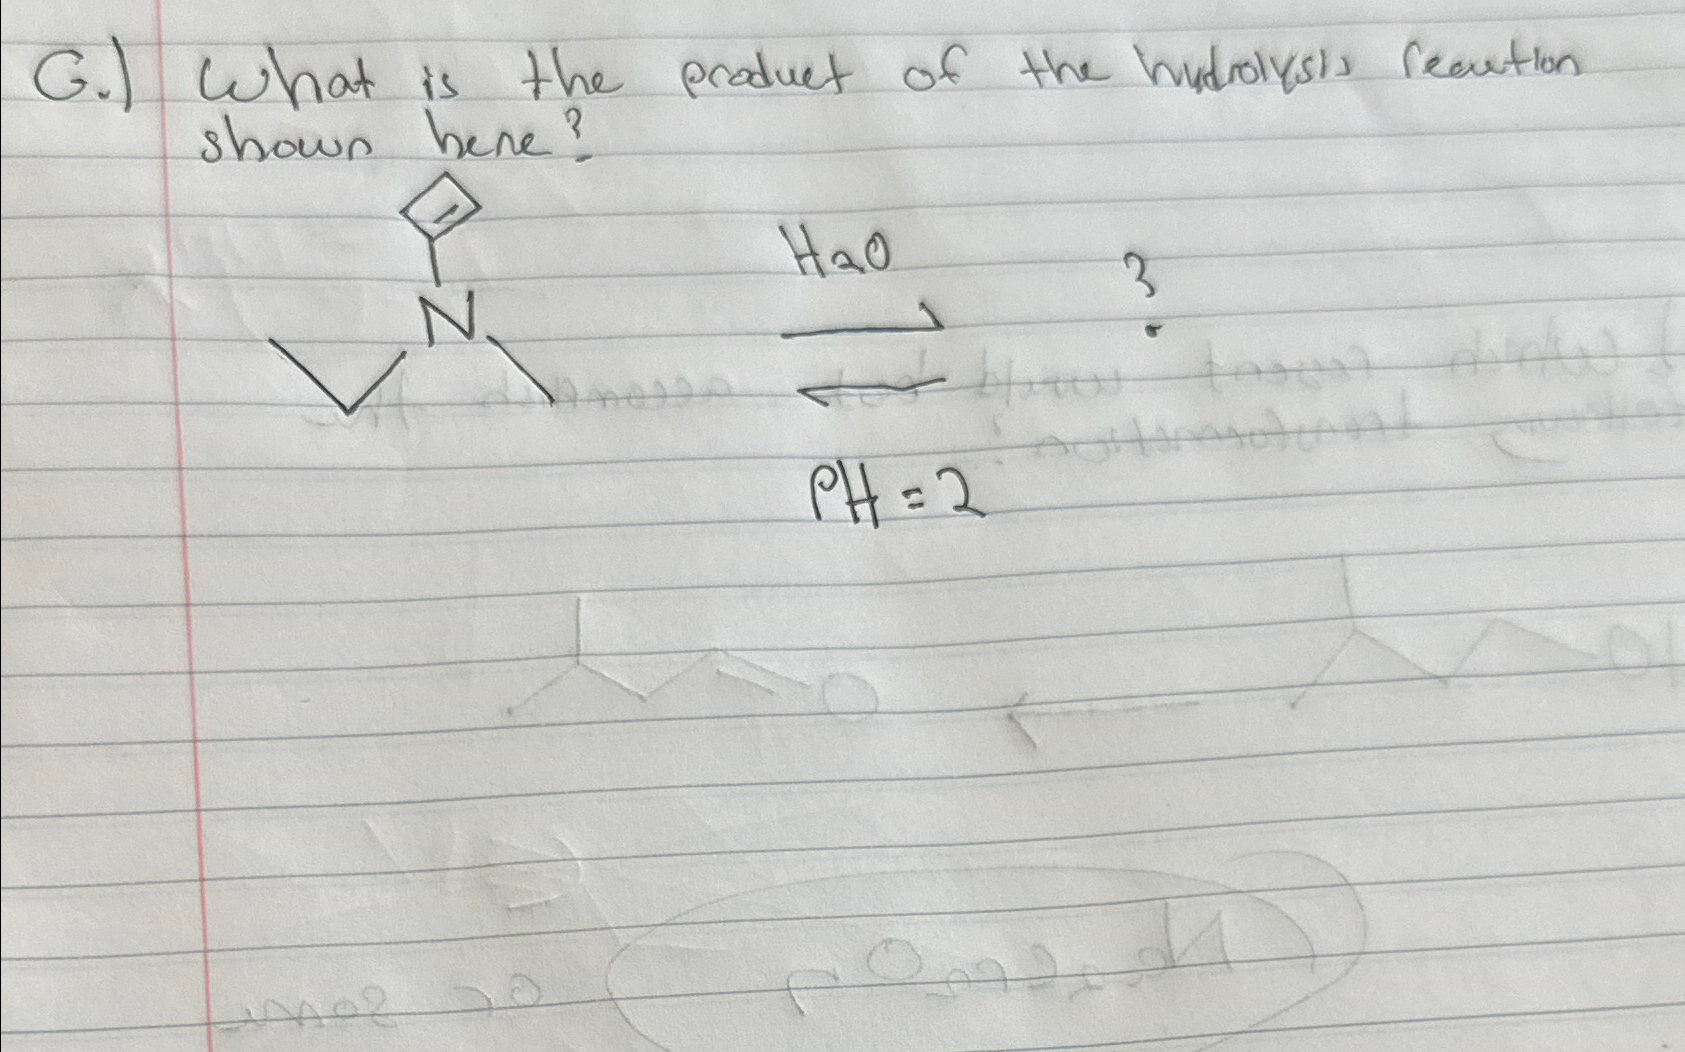 G.) What is the product of the hydrolysis reaction
shown here?
H2O
?
N
PH = 2